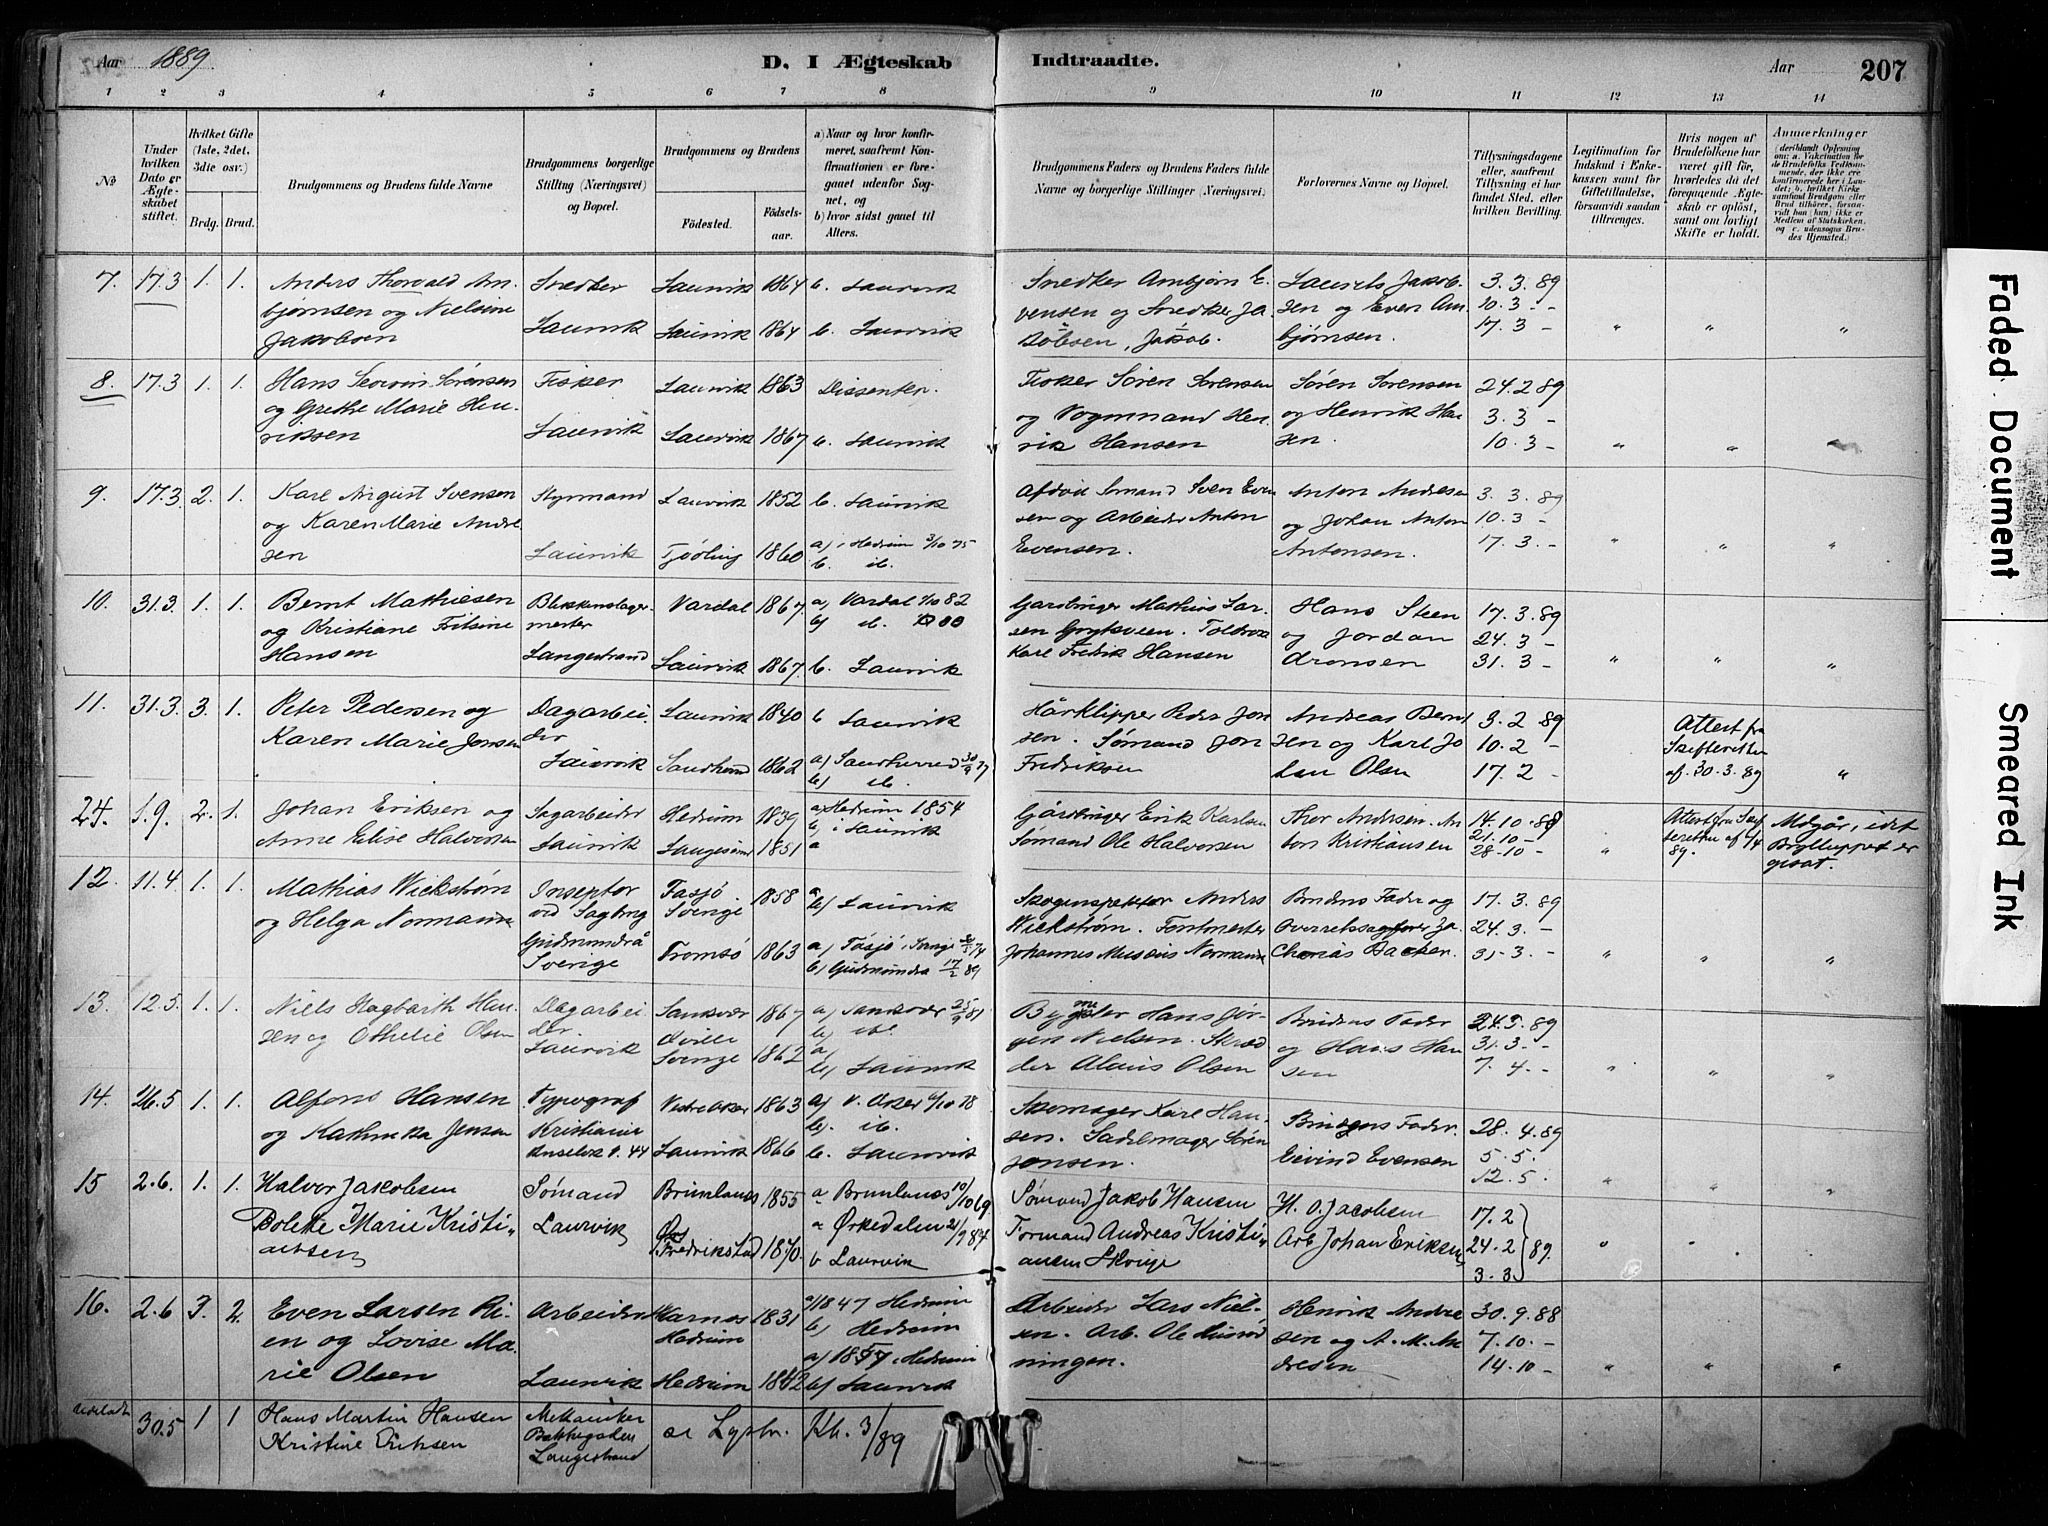 Aar 1889
D. I Ægteskab Indtraadte.
Aar 207
1 2 3 4 5 6 7 8 9 10 11 12 13 14
No
Under hvilken Dato er Ægteskabet stiftet.
Hvilket Gifte (1ste, 2det, 3die osv.)
Brdg. Brud.
Brudgommens og Brudens fulde Navne
Brudgommens borgerlige Stilling (Næringsvei) og Bopæl.
Brudgommens og Brudens
Fødested.
Fødselsaar.
a) Naar og hvor konfirmeret, saafremt Konfirmationen er foregaaet udenfor Sognet, og
b) hvor sidst gaaet til Alters.
Brudgommens Faders og Brudens Faders fulde Navne og borgerlige Stillinger (Næringsvei)
Forlovernes Navne og Bopæl.
Tillysningsdagene eller, saafremt Tillysning ei har fundet Sted, efter hvilken Bevilling.
Legitimation for Indskud i Enkekassen samt for Giftetilladelse, forsaavidt saadan tiltrænges.
Hvis nogen af Brudefolkene har været gift før, hvorledes da det foregaaende Ægteskab er opløst, samt om lovligt Skifte er holdt.
Anmærkninger
7. 17.3 1. 1. Anders Thorvald Arnbjørnsen og Nielsine Jakobsen
Snedker Laurvik
Laurvik 1864 b. Laurvik
Laurvik 1864 b. Laurvik
Snedker Arnbjørn Evensen og Snedker Jakobsen, Jakob.
Laurits Jakobsen og Even Arnbjørnsen.
3.3.89
10.3 -
17.3 -
8. 17.3 1. 1. Hans Søren Sørensen og Grethe Marie Henriksen
Fisker Laurvik
Laurvik 1863 Dissenter.
Laurvik 1867 b. Laurvik
Fisker Søren Sørensen og Vognmand Henrik Hansen
Søren Sørensen og Henrik Hansen.
24.2 89
3.3 -
10.3 -
9. 17.3 2. 1. Karl August Svensen og Karen Marie Andresen
Styrmand Laurvik
Laurvik 1852 b. Laurvik
Tjødling 1860 a) i Hedrum 3/10 75
b. ib.
Sømand Sven Evensen og Arbeider Anton Evensen.
Anton Andresen og Johan Anton Antonsen.
3.3.89
10.3 -
17.3 -
10. 31.3 1. 1. Bernt Mathiesen og Kristiane Hansen
Blikkenslagermester Langestrand
Vardal 1867 a) Vardal 1/10 82
b) ib.
Laurvik 1867 b. Laurvik
Gardbruger Mathias Larsen
Karl Fredrik Hansen
Hans Steen og Jordan
17.3.89
24.3 -
31.3 -
11. 31.3. 3. 1. Peter Pedersen og Karen Marie Jonsen
Dagarbeider Laurvik
Laurvik 1840 b Laurvik
Sandherred 1862 a) Sandherred 30/9 77
b) ib.
Hårklipper Peder Jonsen. Sømand Jon Fredriksen
Andreas Berntsen og Karl Johan Olsen
3.2 89
10.2 -
17.2 -
Attest fra Skifteretten af 30.3.89
24. 1.9. 2. 1. Johan Eriksen og Anne Elise Halvorsen
Sagarbeider Laurvik
Hedrum 1839 a Hedrum 1854
b) i Laurvik
Langesund 1851 a
Gårdbruger Erik Karlsen
Sømand Ole Halvorsen
Thor Andersen. Anton Kristiansen
14.10.88
21.10 -
28.10 -
Attest fra Skifteretten af 1/4 89.
Udgår, idet Brylluppet er opsat.
12. 11.4. 1. 1. Mathias Wickstrøm og Helga Normann
ved Sagbrug Gudmundrå Sverige
Tåsjö Sverige 1858 a b) Laurvik
Tromsø 1863 a) Tåsjö
b) Gudmundrå 17/2 89
Skoginspektør Anders Wickstrøm.
Johannes Musæus Normann
Brudens Fader og Overretssagfører Zacharias Backer.
17.3.89
24.3. -
31.3. -
13. 12.5. 1. 1. Niels Hagbarth Hansen og Othelie Olsen
Dagarbeider. Laurvik
1867 b) ib.
Sverige 1862 a) b) Laurvik
Hans Jørgen Nielsen. Skrædder Olaus Olsen
Brudens Fader og Hans Hansen
24.3.89
31.3. -
7.4. -
14. 26.5 1. 1. Alfons Hansen og Kathinka Jensen
Typograf Kristiania
Vestre Aker 1863 a) V. Aker 6/10 78
b). ib.
Laurvik 1866 b. Laurvik
Skomager Karl Hansen. Sadelmager Søren Jensen.
Brudens Fader.
Eivind Evensen
28.4.89
5.5. -
12.5. -
15 2.6. 1. 1. Halvor Jakobsen
Bolette Marie Kristiansen
Sømand Laurvik
Brunlanæs 1855 a Brunlanæs 10/10 69
Fredrikstad 1870. a Ørkedalen 21/9 84
b Laurvik
Sømand Jakob Hansen
Formand Andreas Kristiansen
H. O. Jacobsen
Arb Johan Eriksen
17.2
24.2 89.
3.3
16. 2.6 3. 2. Even Larsen Rien og Lovise Marie Olsen
Arbeider Laurvik
Hedrum 1831 a) 1847 Hedrum
b) Hedrum
Hedrum 1842 a) 1857 i Hedrum
b) Laurvik
Arbeider Lars Nielsen. Arb. Ole
Henrik Andresen og A. M. Andresen
30.9.88
7.10. -
14.10 -
30.5 1 1 Hans Martin Hansen
Kristine Eriksen
Mekaniker Langestrand
Kl. 3/89
Faded Document
Smeared Ink